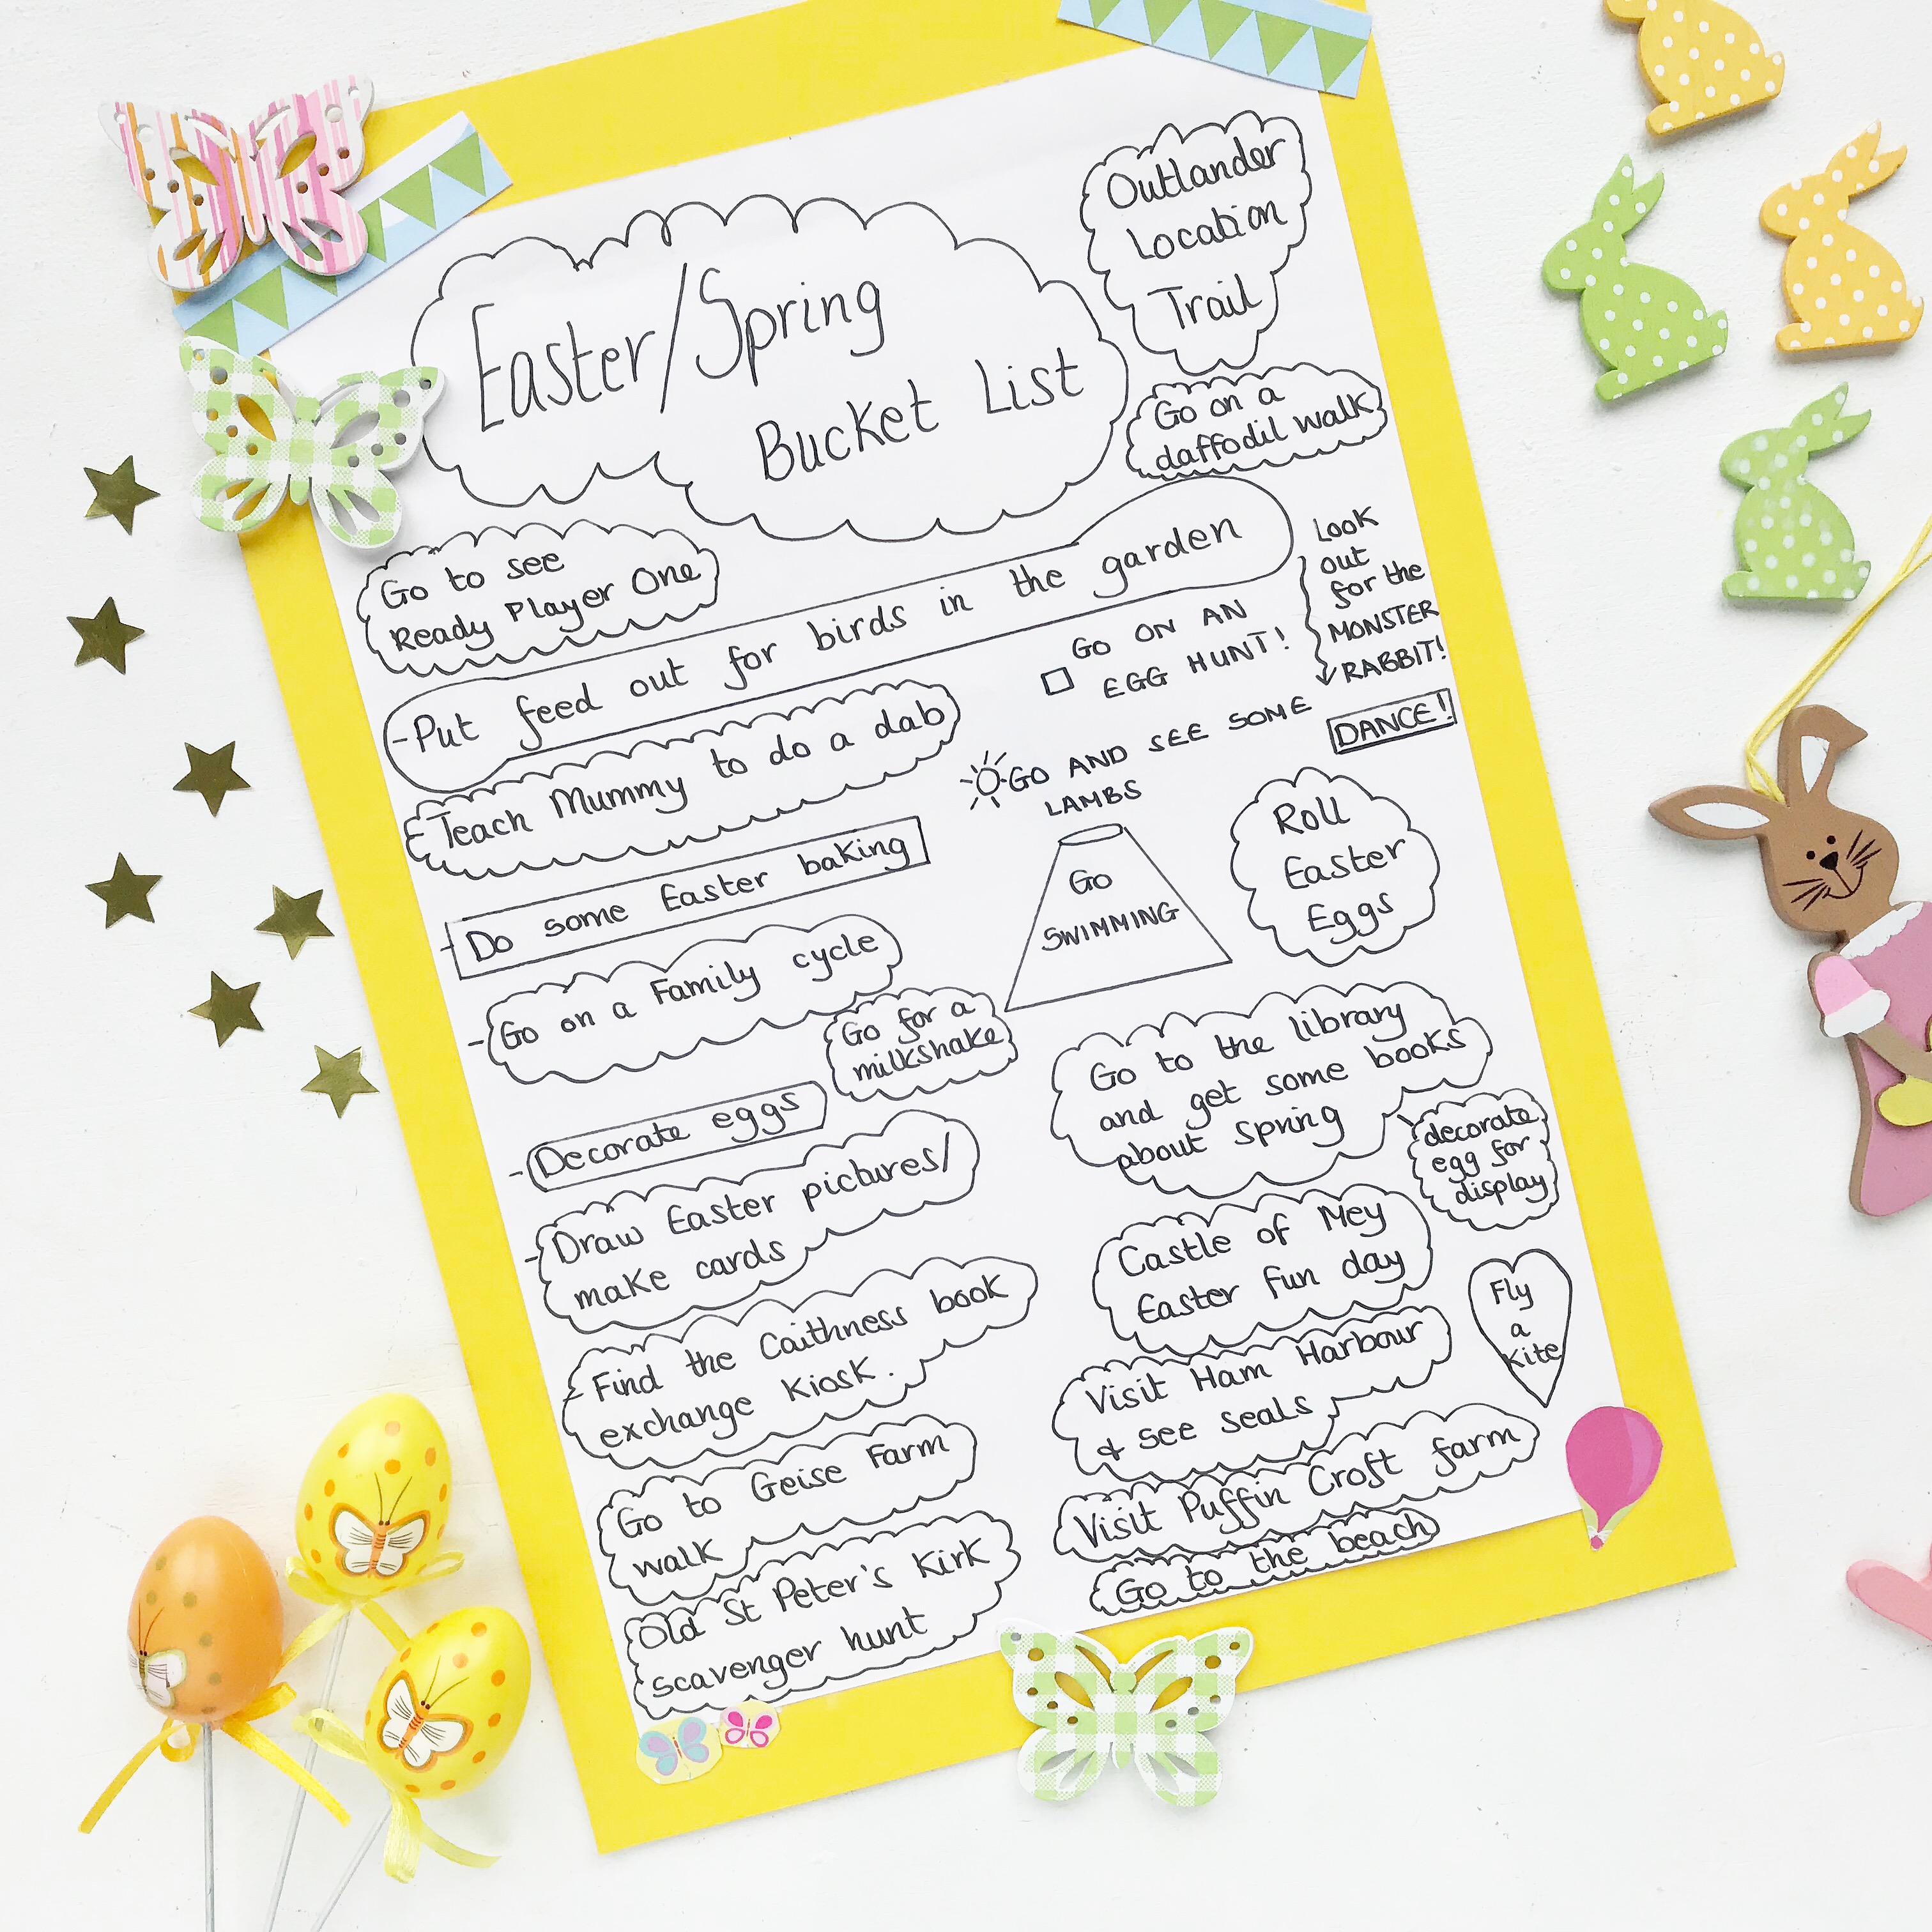 Easter/Spring
Bucket List
Outlander
Location
Trail
Go on a
daffodil walk
Go to see
Ready Player One
-Put feed out for birds in the garden
Look
out
for the
MONSTER
RABBIT!
GO ON AN
EGG HUNT!
-Teach Mummy to do a dab
GO AND SEE SOME
LAMBS
DANCE!
-Do some Easter baking
GO
SWIMMING
Roll
Easter
Eggs
-Go on a Family cycle
Go for a
milkshake
Go to the library
and get some books
about Spring
-Decorate eggs
decorate
egg for
display
-Draw Easter pictures/
make cards
Castle of Mey
Easter fun day
-Find the Caithness book
exchange Kiosk.
Visit Ham Harbour
& see seals
Fly
a
kite
Go to Geise Farm
walk
Visit Puffin Croft farm
Go to the beach
Old St Peter's Kirk
scavenger hunt